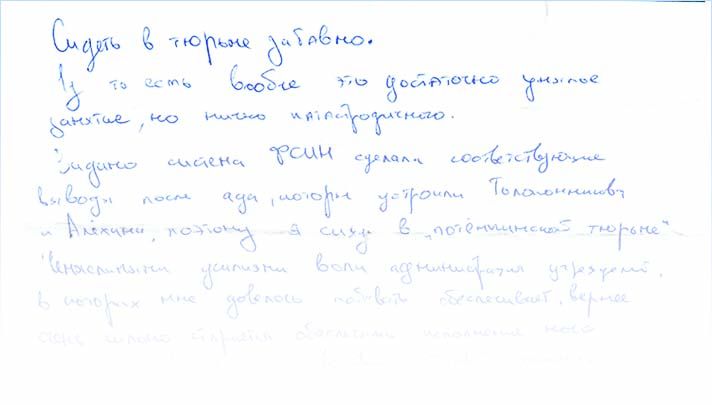 Сидеть в тюрьме забавно.
Ну то есть вообще это достаточно унылое
занятие, но ничего катастрофичного.
Видимо система ФСИН сделала соответствующие
выводы после ада, который устроили Толоконниковой
и Алёхиной, поэтому я сижу в „потёмкинской тюрьме"
усилиями воли администрация учреждений,
в которых мне довелось побывать обеспечивает, вернее
очень сильно старается исполнение